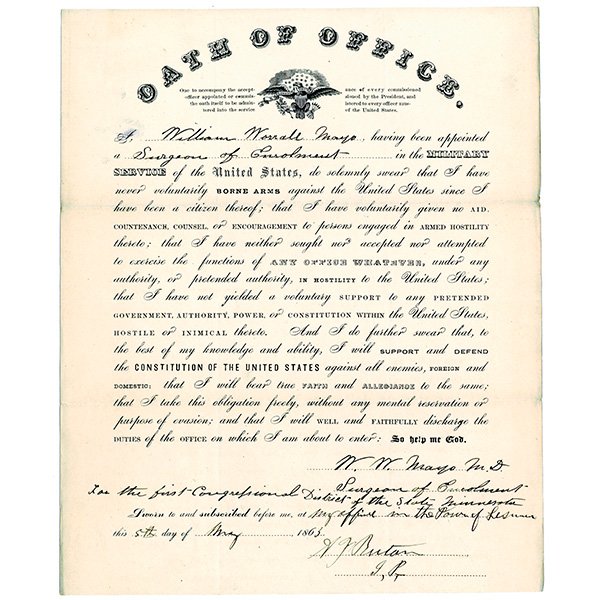 OATH OF OFFICE.
One to accompany the accept-
ance of every commissioned
officer appointed or commis-
sioned by the President, and
the oath itself to be admin-
istered to every officer mus-
tered into the service
of the United States.
I, William Worrall Mayo, having been appointed
a Surgeon of Enrolment in the MILITARY
SERVICE of the United States, do solemnly swear that I have
never voluntarily BORNE ARMS against the United States since I
have been a citizen thereof; that I have voluntarily given no AID,
COUNTENANCE, COUNSEL, or ENCOURAGEMENT to persons engaged in ARMED HOSTILITY
thereto; that I have neither sought nor accepted nor attempted
to exercise the functions of ANY OFFICE WHATEVER, under any
authority, or pretended authority, IN HOSTILITY to the United States;
that I have not yielded a voluntary SUPPORT to any PRETENDED
GOVERNMENT, AUTHORITY, POWER, or CONSTITUTION WITHIN the United States,
HOSTILE or INIMICAL thereto. And I do further swear that, to
the best of my knowledge and ability, I will SUPPORT and DEFEND
the CONSTITUTION OF THE UNITED STATES against all enemies, FOREIGN and
DOMESTIC: that I will bear true FAITH and ALLEGIANCE to the same;
that I take this obligation freely, without any mental reservation or
purpose of evasion; and that I will WELL and FAITHFULLY discharge the
DUTIES OF THE OFFICE on which I am about to enter: So help me God.
W. W. Mayo M.D
Surgeon of Enrolment
For the first Congressional District of the State Minnesota
Sworn to and subscribed before me, at my office in the Town of
this 5th day of May 1863.
J. P.